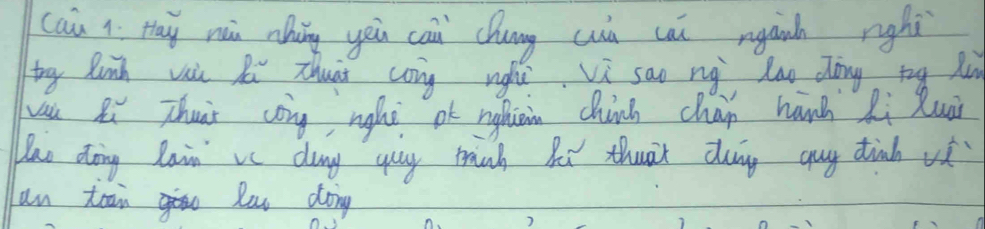 Câu 1: Hãy nêu những yêu cầu chung của các ngành nghề
trg lĩnh vực kĩ thuật công nghệ. Vì sao ng lao động trg lĩnh
vực kĩ thuật công nghệ pk nghiêm chỉnh chấp hành kỉ luật
lao động làm vc đúng quy trình kĩ thuật đúng quy định về
an toàn lao động